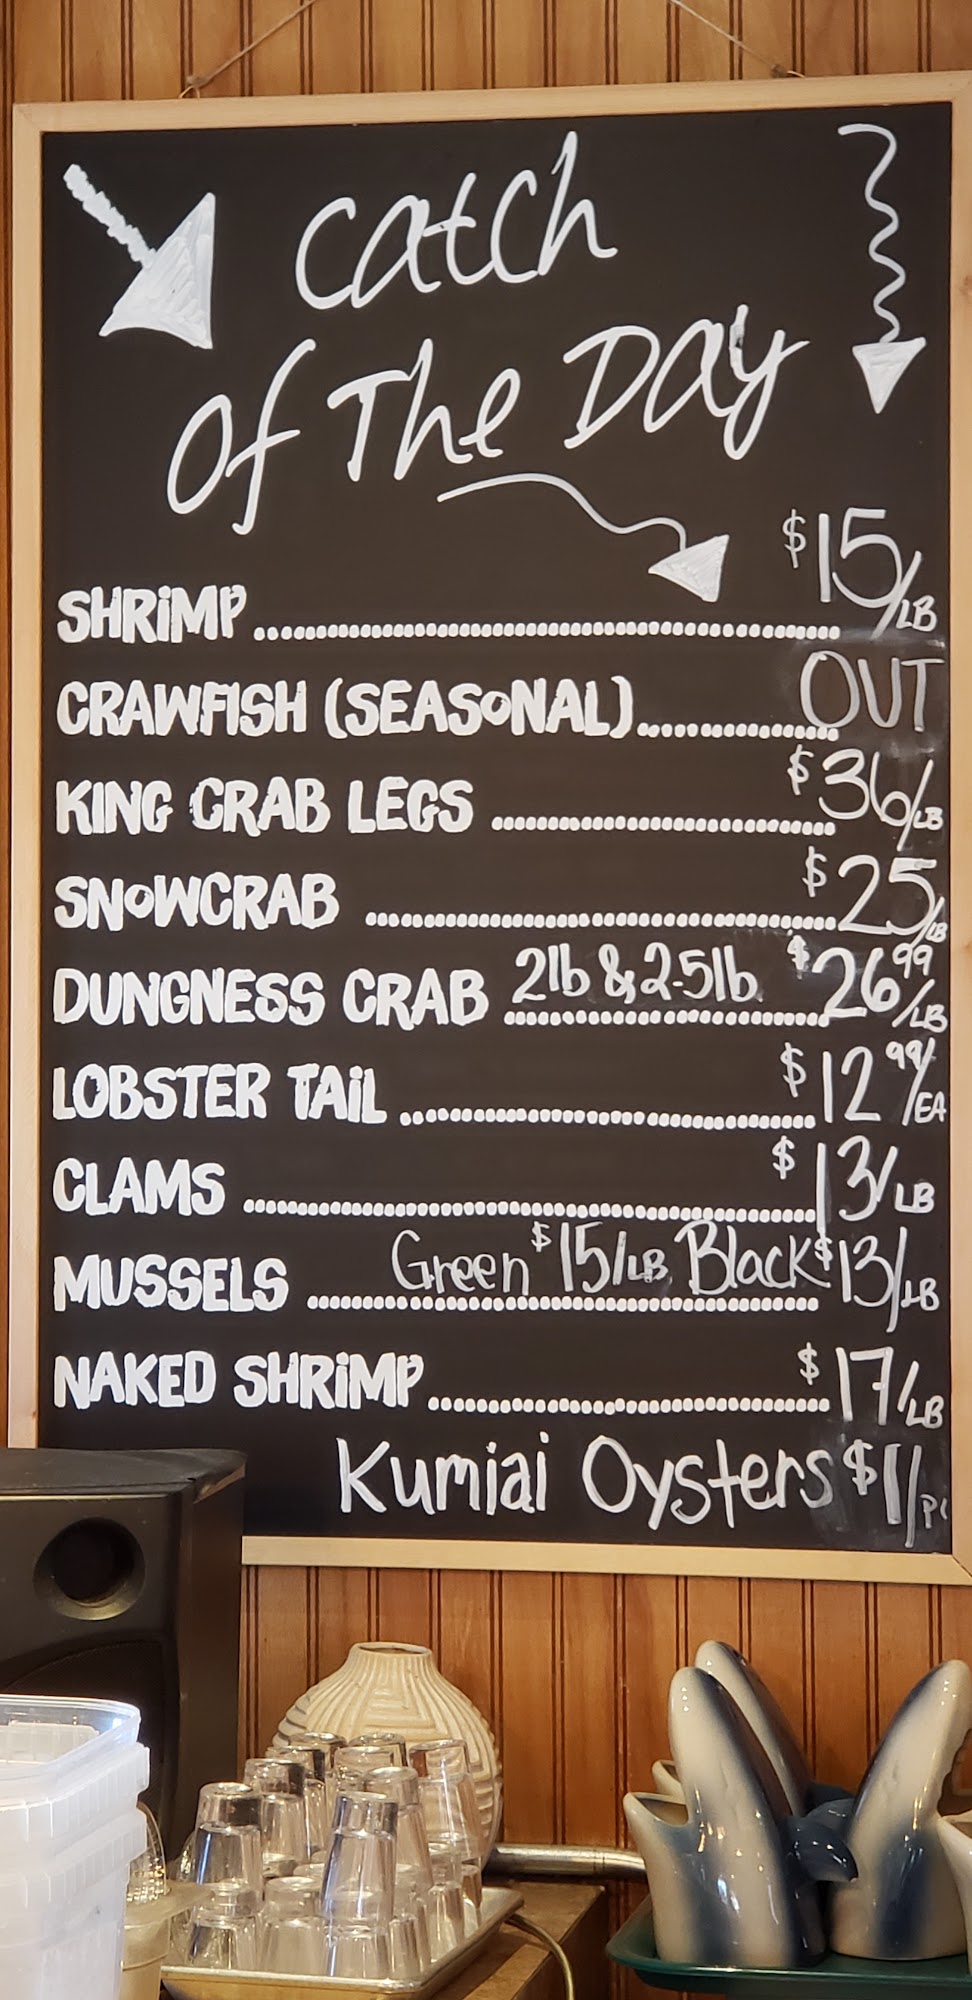 Catch
Of The Day
SHRIMP $15/LB
CRAWFISH (SEASONAL) OUT
KING CRAB LEGS $36/LB
SNOWCRAB $25/LB
DUNGNESS CRAB 2lb & 2.5lb $26 99/LB
LOBSTER TAIL $12 99/EA
CLAMS $13/LB
MUSSELS Green $15/LB Black $13/LB
NAKED SHRIMP $17/LB
Kumiai Oysters $1/PC